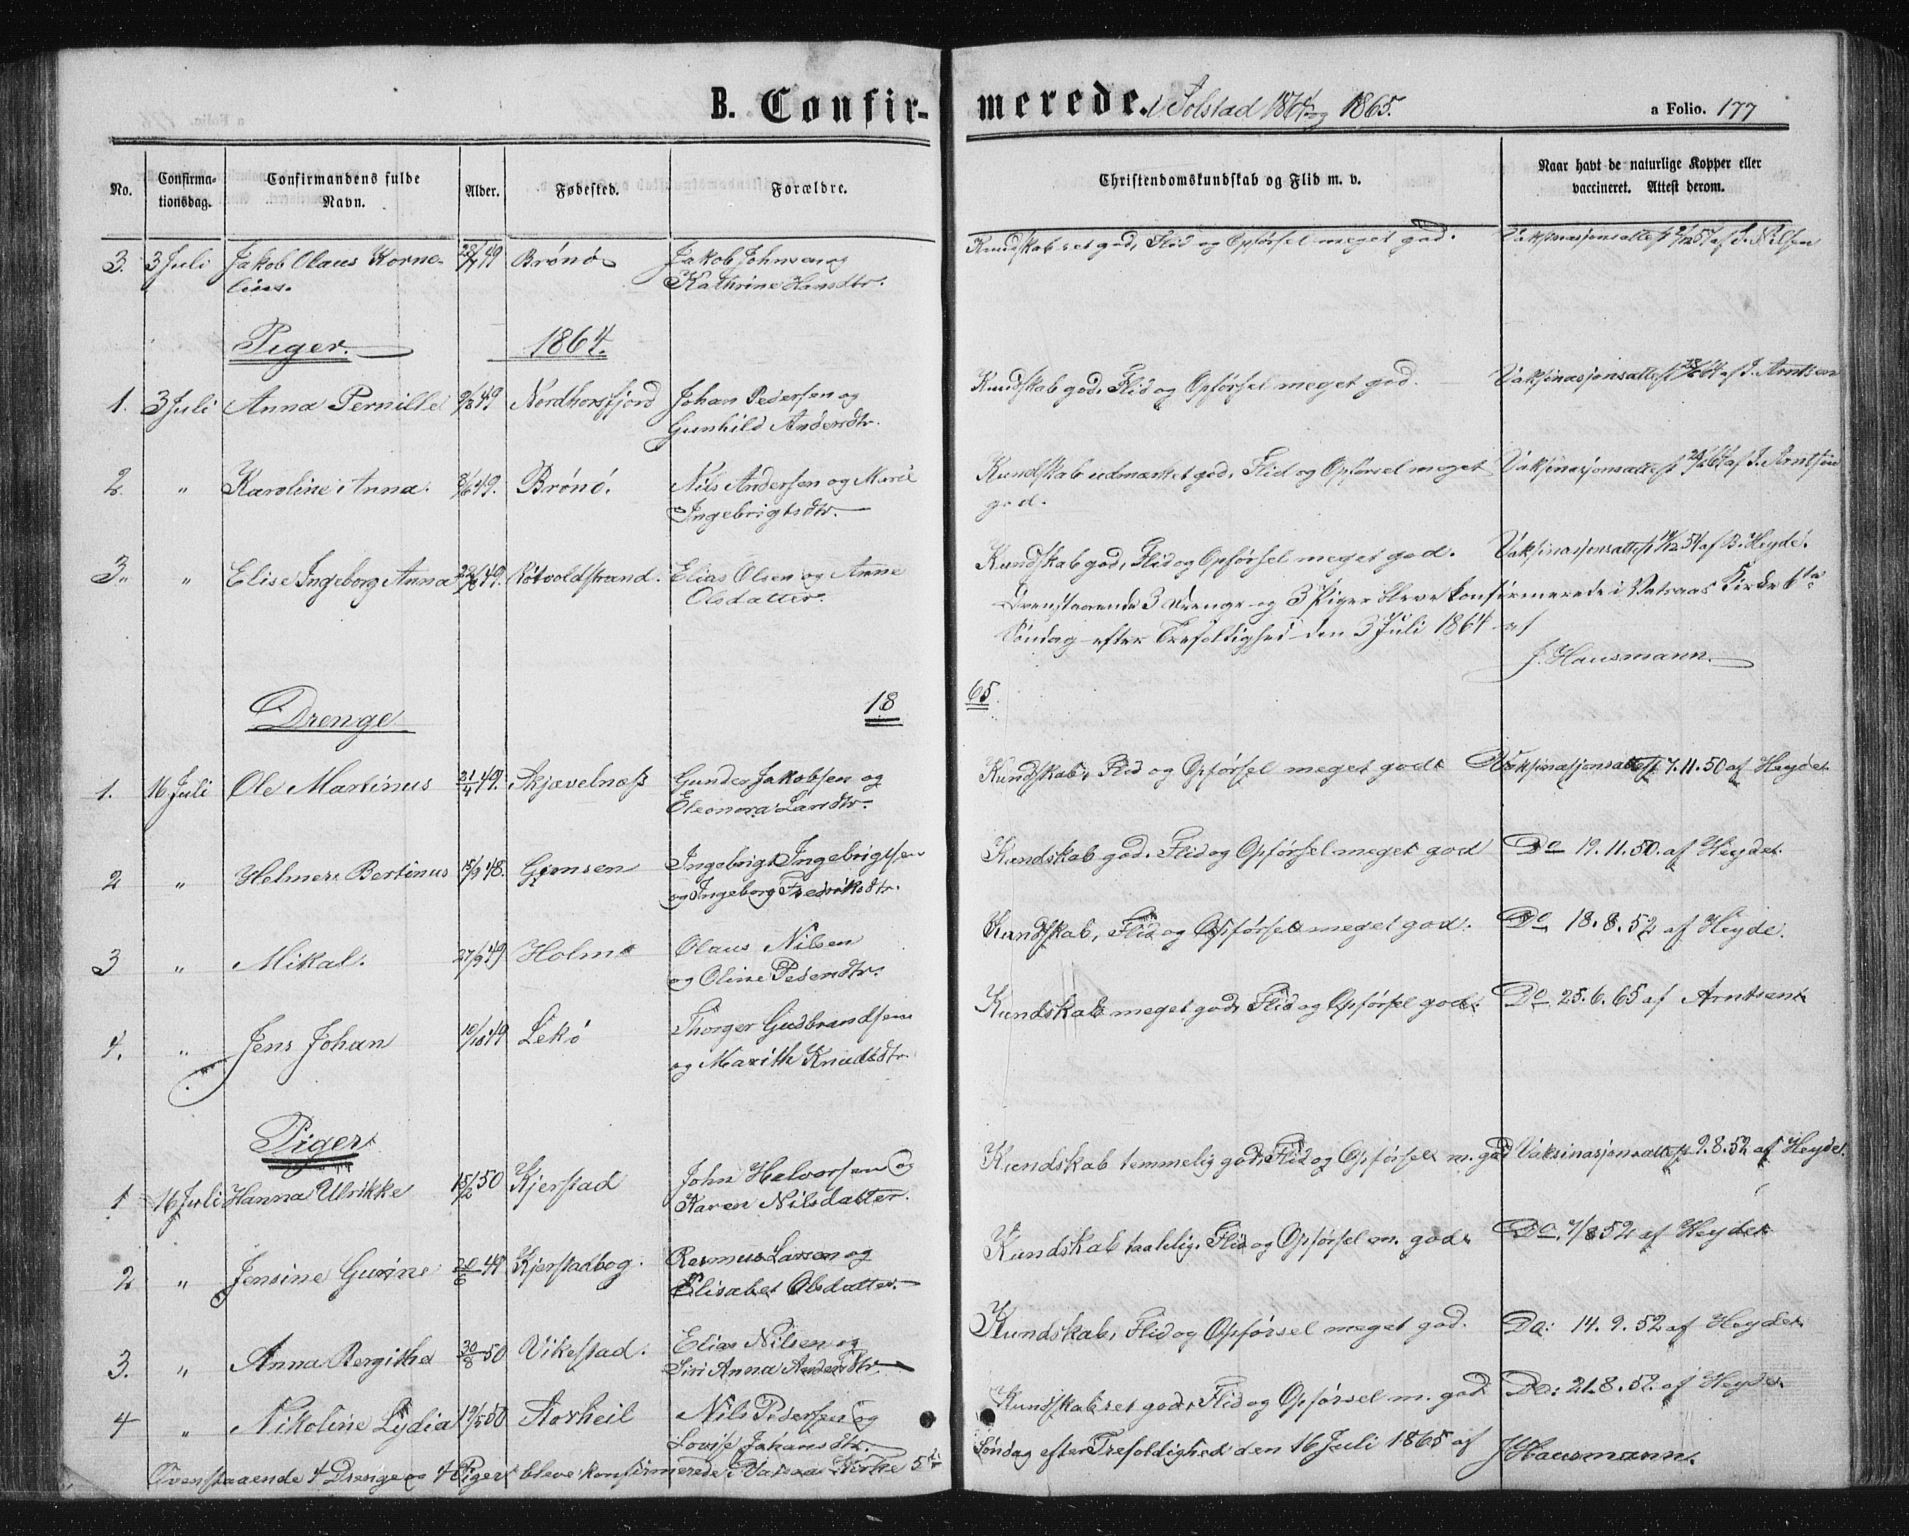 B. Confir- merede. i Solstad 1864 og 1865. a Folio. 177
No. Confirma-tionsdag. Confirmandens fulde Navn. Alder. Fødested. Forældre. Christendomskundskab og Flid m. v. Naar havt de naturlige Kopper eller vaccineret. Attest derom.
3. 3 Juli Jakob Olaus Korne- 49 Brønø Jakob Johnsen og Kundskab ret god, Flid og Opførsel meget god. Vaksinasjonsattest af J. Nilsen
lius. Kathrine Hansdtr.
Piger. 1864.
1. 3 Juli Anna Pernille 49 Nordhorsfjord Johan Pedersen og Kundskab god, Flid og Opførsel meget god. Vaksinasjonsattest 64 af J. Arntsen
Gunhild Andersdtr.
2. " Karoline Anna. 49. Brønø. Nils Andersen og Marie Kundskab udmærket god, Flid og Opførsel meget Vaksinasjonsattest 64 af J. Arntsen
Ingebrigtsdtr. god.
3. " Elise Ingeborg Anna 49. Røtvoldstrand. Elias Olsen og Anne Kundskab god, Flid og Opførsel meget god. Vaksinasjonsattest 54 af B. Heyde.
Olsdatter. Ovenstaaende 3 Drenge og 3 Piger bleve konfirmerede i Vatraas Kirke 6te
Søndag efter Trefoldighed den 3 Juli 1864 af
J. Hausmann.
Drenge 18 65
1. 16 Juli Ole Martinus 21/4 49. Skjævelnæss Gunder Jakobsen og Kundskab, Flid og Opførsel meget godt Vaksinasjonsattest 7.11.50 af Heyde
Eleonora Larsdtr.
2 " Helmer Bertinus 15/9 48. Gimsen Ingebrigt Ingebrigtsen Kundskab god. Flid og Opførsel meget god Do 19.11.50. af Heyde
og Ingeborg Fredriksdtr.
3 " Mikal. 27/9 49 Holm Olaus Nilsen Kundskab, Flid og Opførsel meget god. Do 18.8.52 af Heyde.
og Oline Pedersdtr.
4. " Jens Johan 10/10 49 Lekø Thorger Gudbrandsen Kundskab meget god, Flid og Opførsel godt Do 25.6.65 af Arntsen
og Marith Knudsdtr.
Piger
1 16 Juli Hanna Ulrikke 15/2 50 Kjerstad John Halvorsen og Kundskab temmelig god, Flid og Opførsel m. god Vaksinasjonsattest 9.8.52 af Heyde.
Karen Nilsdatter.
2 " Jensine Gurine 20/6 49 Kjerstadbog. Rasmus Larsen og Kundskab taalelig. Flid og Opførsel m. god Do. 7/8 52 af Heyde
Elisabet Olsdatter.
3. " Anna Bergitha 30/8 50 Vikestad. Elias Nilsen og Kundskab, Flid og Opførsel meget god. Do: 14.9.52 af Heyde
Siri Anna Andersdtr.
4 " Nikoline Lydia 19/5 50 Storheil Nils Pedersen og Kundskab ret god, Flid og Opførsel m. god Do: 21.8.52. af Heyde
Lovise Johansdtr. Søndag efter Trefoldighed den 16 Juli 1865 af J Hausmann.
Ovenstaaende 4 Drenge og 4 Piger bleve konfirmerede i Kirke 5te